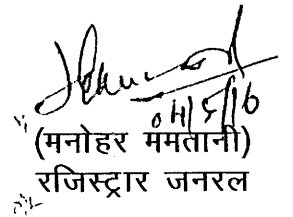 04/5/16
(मनोहर ममतानी)
रजिस्ट्रार जनरल